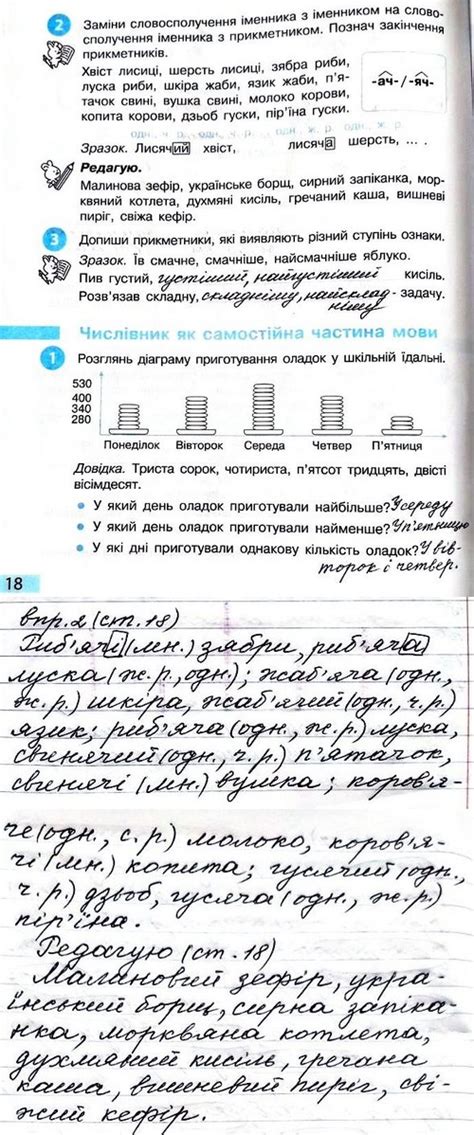 2 Заміни словосполучення іменника з іменником на слово-
сполучення іменника з прикметником. Познач закінчення
прикметників.
Хвіст лисиці, шерсть лисиці, зябра риби,
луска риби, шкіра жаби, язик жаби, п'я-
тачок свині, вушка свині, молоко корови,
копита корови, дзьоб гуски, пір'їна гуски.
-ач-/-яч-
одн., ч. р. одн., ж. р. одн., ч. р. одн., ж. р.
Зразок. Лисячий хвіст, лисяча шерсть, ... .
Редагую.
Малинова зефір, українське борщ, сирний запіканка, мор-
квяний котлета, духмяні кисіль, гречаний каша, вишневі
пиріг, свіжа кефір.
3 Допиши прикметники, які виявляють різний ступінь ознаки.
Зразок. Їв смачне, смачніше, найсмачніше яблуко.
Пив густий, густіший, найгустіший кисіль.
Розв'язав складну, складнішу, найсклад- задачу.
нішу
Числівник як самостійна частина мови
1 Розглянь діаграму приготування оладок у шкільній їдальні.
530
400
340
280
Понеділок Вівторок Середа Четвер П'ятниця
Довідка. Триста сорок, чотириста, п'ятсот тридцять, двісті
вісімдесят.
• У який день оладок приготували найбільше? У середу
• У який день оладок приготували найменше? У п'ятницю
• У які дні приготували однакову кількість оладок? У вів-
торок і четвер.
18
впр. 2 (ст. 18)
Риб'ячі (мн.) зябри, риб'яча
луска (ж. р., одн.); жаб'яча (одн.,
ж. р.) шкіра, жаб'ячий (одн., ч. р.)
язик; риб'яча (одн., ж. р.) луска,
свинячий (одн., ч. р.) п'ятачок,
свинячі (мн.) вушка; коров'я-
че (одн., с. р.) молоко, коров'я-
чі (мн.) копита; гусячий (одн.,
ч. р.) дзьоб, гусяча (одн., ж. р.)
пір'їна.
Редагую (ст. 18)
Малиновий зефір, укра-
їнський борщ, сирна запіка-
нка, морквяна котлета,
духмяний кисіль, гречана
каша, вишневий пиріг, сві-
жий кефір.